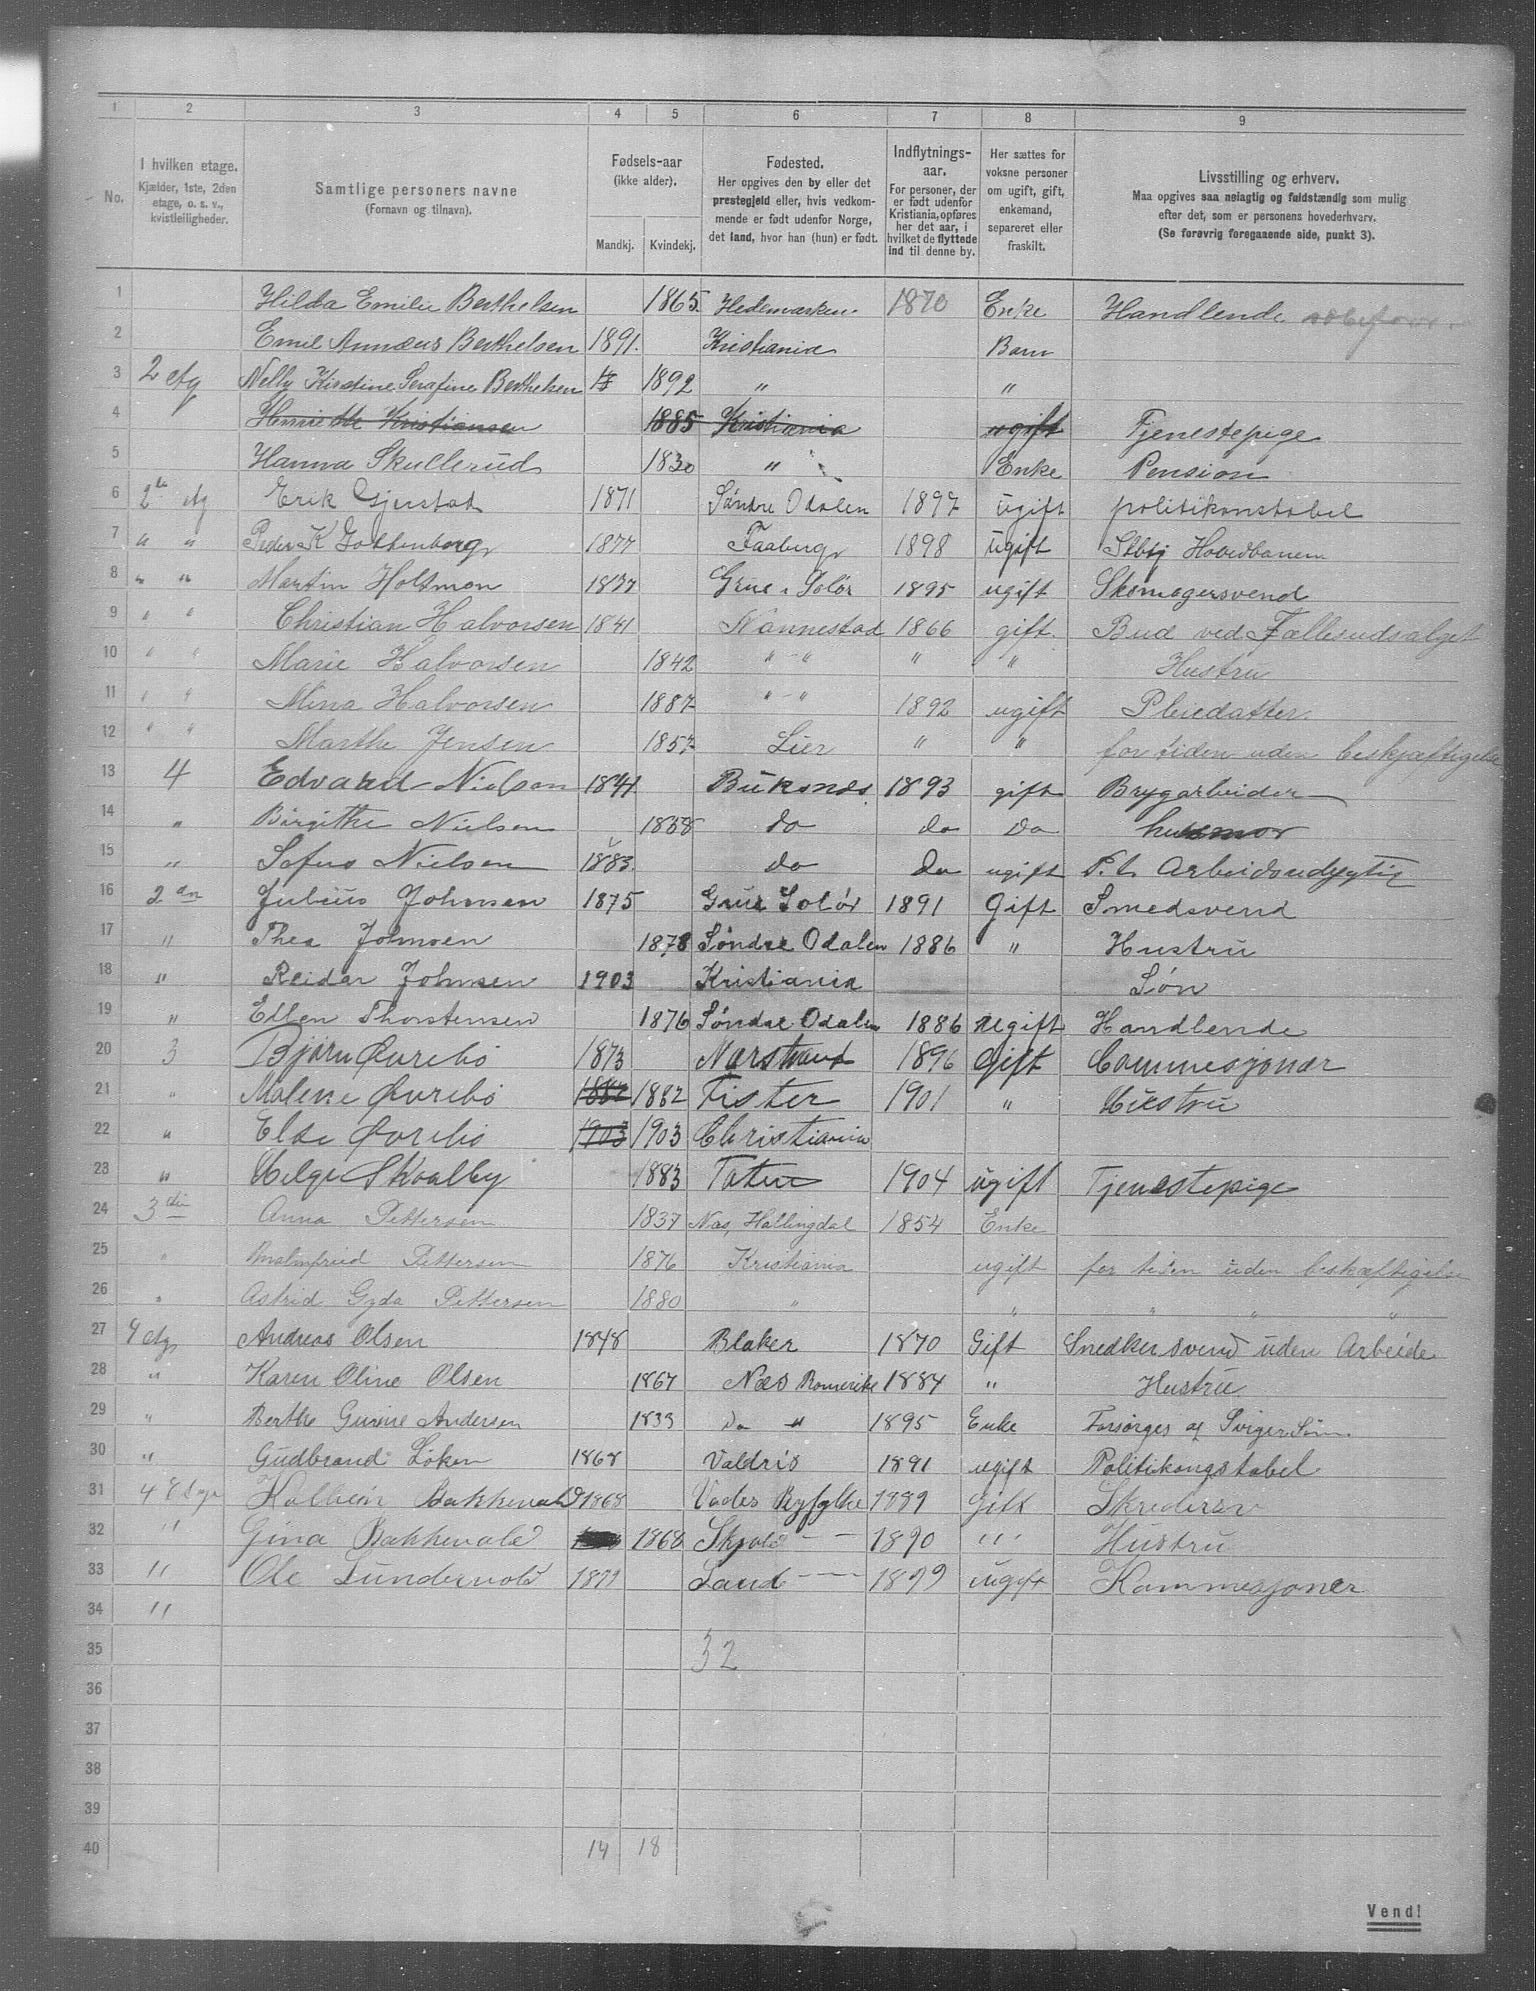 1 2 3 4 5 6 7 8 9
No. I hvilken etage. Kjælder, 1ste, 2den etage, o. s. v., kvistleiligheder. Samtlige personers navne (Fornavn og tilnavn). Fødsels-aar (ikke alder). Mandkj. Kvindekj. Fødested. Her opgives den by eller det prestegjeld eller, hvis vedkommende er født udenfor Norge, det land, hvor han (hun) er født. Indflytnings-aar. For personer, der er født udenfor Kristiania, opføres her det aar, i hvilket de flyttede ind til denne by. Her sættes for voksne personer om ugift, gift, enkemand, separeret eller fraskilt. Livsstilling og erhverv. Maa opgives saa nøiagtig og fuldstændig som mulig efter det, som er personens hovederhverv. (Se forøvrig foregaaende side, punkt 3).
1 Hilda Emilie Berthelsen 1865 Hedemarken 1870 Enke Handlende
2 Emil Annæus Berthelsen 1891. Kristiania Barn
3 2 etg Nelly Kirstine Serafine Berthelsen 1892 " "
4 " Henriette Kristiansen 1885 Kristiania ugift Tjenestepige
5 Hanna Skullerud 1830 " Enke Pension
6 2de etg Erik Gjerstad 1871 Søndre Odalen 1897 ugift politikonstabel
7 " " Peder K Gottenborg 1877 Faaberg 1898 ugift Stbtj Hovedbanen
8 " " Martin Holtmon 1877 Grue i Solør 1895 ugift Skomagersvend
9 " " Christian Halvorsen 1841 Nannestad 1866 gift Bud ved Fællesudsalget
10 " " Marie Halvorsen 1842 " - " " " Hustru
11 " " Mina Halvorsen 1887 " - " 1892 ugift Pleiedatter
12 " " Marthe Jensen 1857 Lier " " for tiden uden beskjæftigelse
13 4 Edvard Nielsen 1841 Buksnes 1893 gift Brygarbeider
14 " Birgithe Nielsen 1838 do do Do husmor
15 " Sofus Nielsen 1883. do do ugift P.t. Arbeidsudygtig
16 2den Julius Johnsen 1875 Grue Solør 1891 Gift Smedsvend
17 " Thea Johnsen 1878 Søndre Odalen 1886 " Hustru
18 " Reidar Johnsen 1903 Kristiania Søn
19 " Ellen Thorstensen 1876 Søndre Odalen 1886 ugift Handlende
20 3 Bjørn Øvrebø 1873 Nærstrand 1896 Gift Commesjonær
21 " Malene Øvrebø 1882 1882 Fister 1901 " Hustru
22 " Else Øvrebø 1903 1903 Christiania
23 " Helga Skvalby 1883 Toten 1904 ugift Tjenestepige
24 3die Anna Pettersen 1837 Næs, Hallingdal 1854 Enke
25 " Malmfrid Pettersen 1876 Kristiania ugift for tiden uden beskæftigelse
26 " Astrid Gyda Pettersen 1880 " " " " "
27 4 etg Andreas Olsen 1848 Blaker 1870 Gift Snedkersvend uden Arbeide
28 " Karen Oline Olsen 1867 Næs Romerike 1884 " Hustru
29 " Berthe Gurine Andersen 1833 Do " 1895 Enke Forsørges af SvigerSøn
30 " Gudbrand Løken 1868 Valdris 1891 ugift Politikongstabel
31 4 Etage Kolbein Bakkevold 1868 Vads Ryfylke 1889 Gift Skredersv
32 " Gina Bakkevold 1868 Skjold - - 1890 " Hustru
33 " Ole Sundervold 1879 Land - - 1899 ugift Kommesjoner
34 "
35 32
36
37
38
39
40 14 18
Vend!